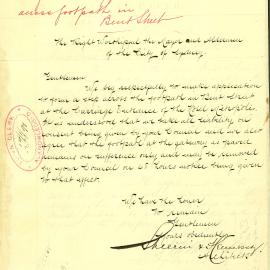 across footpath in
Bent Street
The Right Worshipful the Mayor and Aldermen
of the City of Sydney
Gentlemen
We beg respectfully to make application
to form a step across the footpath in Bent Street
at the Carriage Entrance of the
It is understood that we take all liability on
consent being given by your Council and we also
agree that the footpath at the gateway as paved
remains on sufferance only and may be removed
by your Council on notice being given
to that effect.
We have the honor
to remain
Gentlemen
Yours obediently
Sheerin & Hennessy
Architects